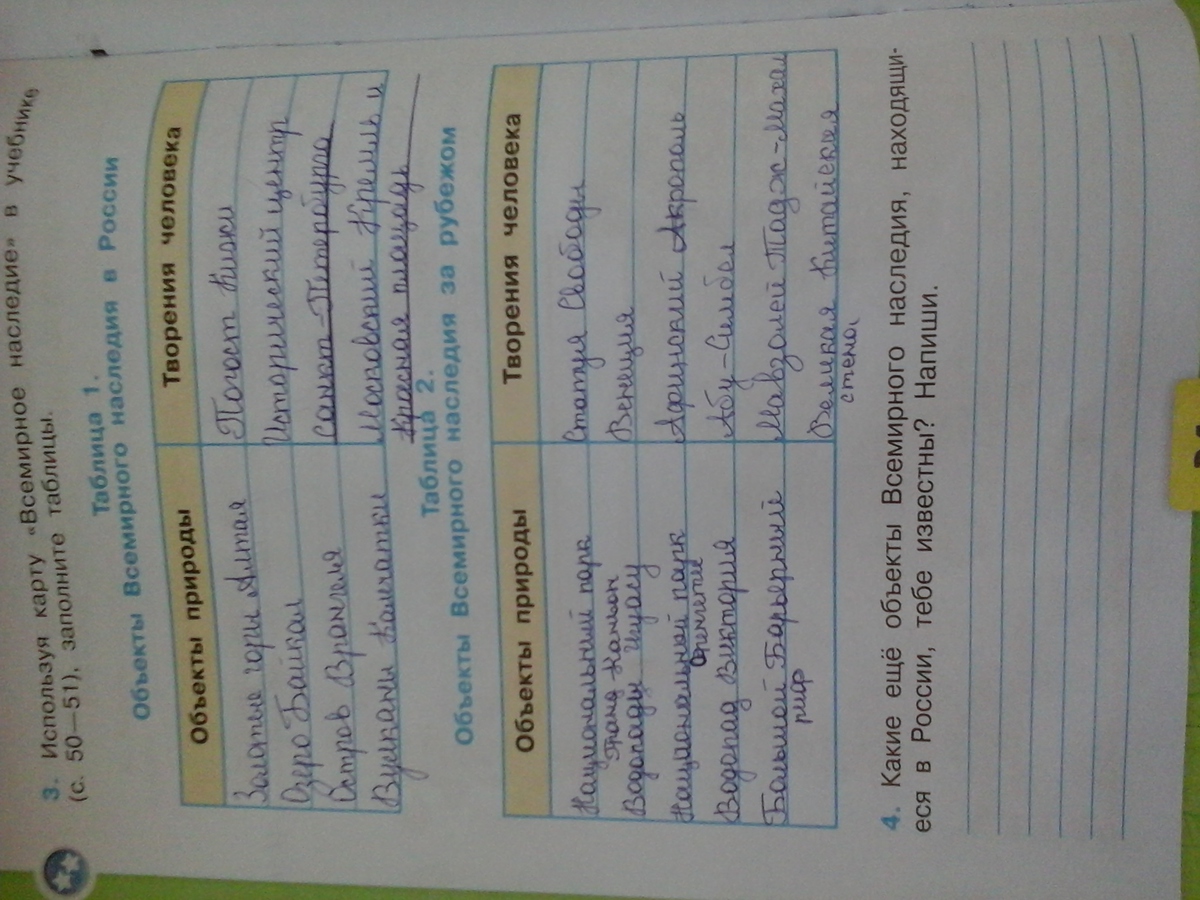 3. Используя карту «Всемирное наследие» в учебнике
(с. 50—51), заполните таблицы.
Таблица 1.
Объекты Всемирного наследия в России
Объекты природы
Творения человека
Золотые горы Алтая
Погост Кижи
Озеро Байкал
Исторический центр
Остров Врангеля
Санкт-Петербурга
Вулканы Камчатки
Московский Кремль и
Красная площадь
Таблица 2.
Объекты Всемирного наследия за рубежом
Объекты природы
Творения человека
Национальный парк
Статуя Свободы
Гранд-Каньон
Водопады Игуасу
Венеция
Национальный парк
Афинский Акрополь
Серенгети
Водопад Виктория
Абу-Симбел
Большой Барьерный
Мавзолей Тадж-Махал
риф
Великая Китайская
стена
4. Какие ещё объекты Всемирного наследия, находящи-
еся в России, тебе известны? Напиши.